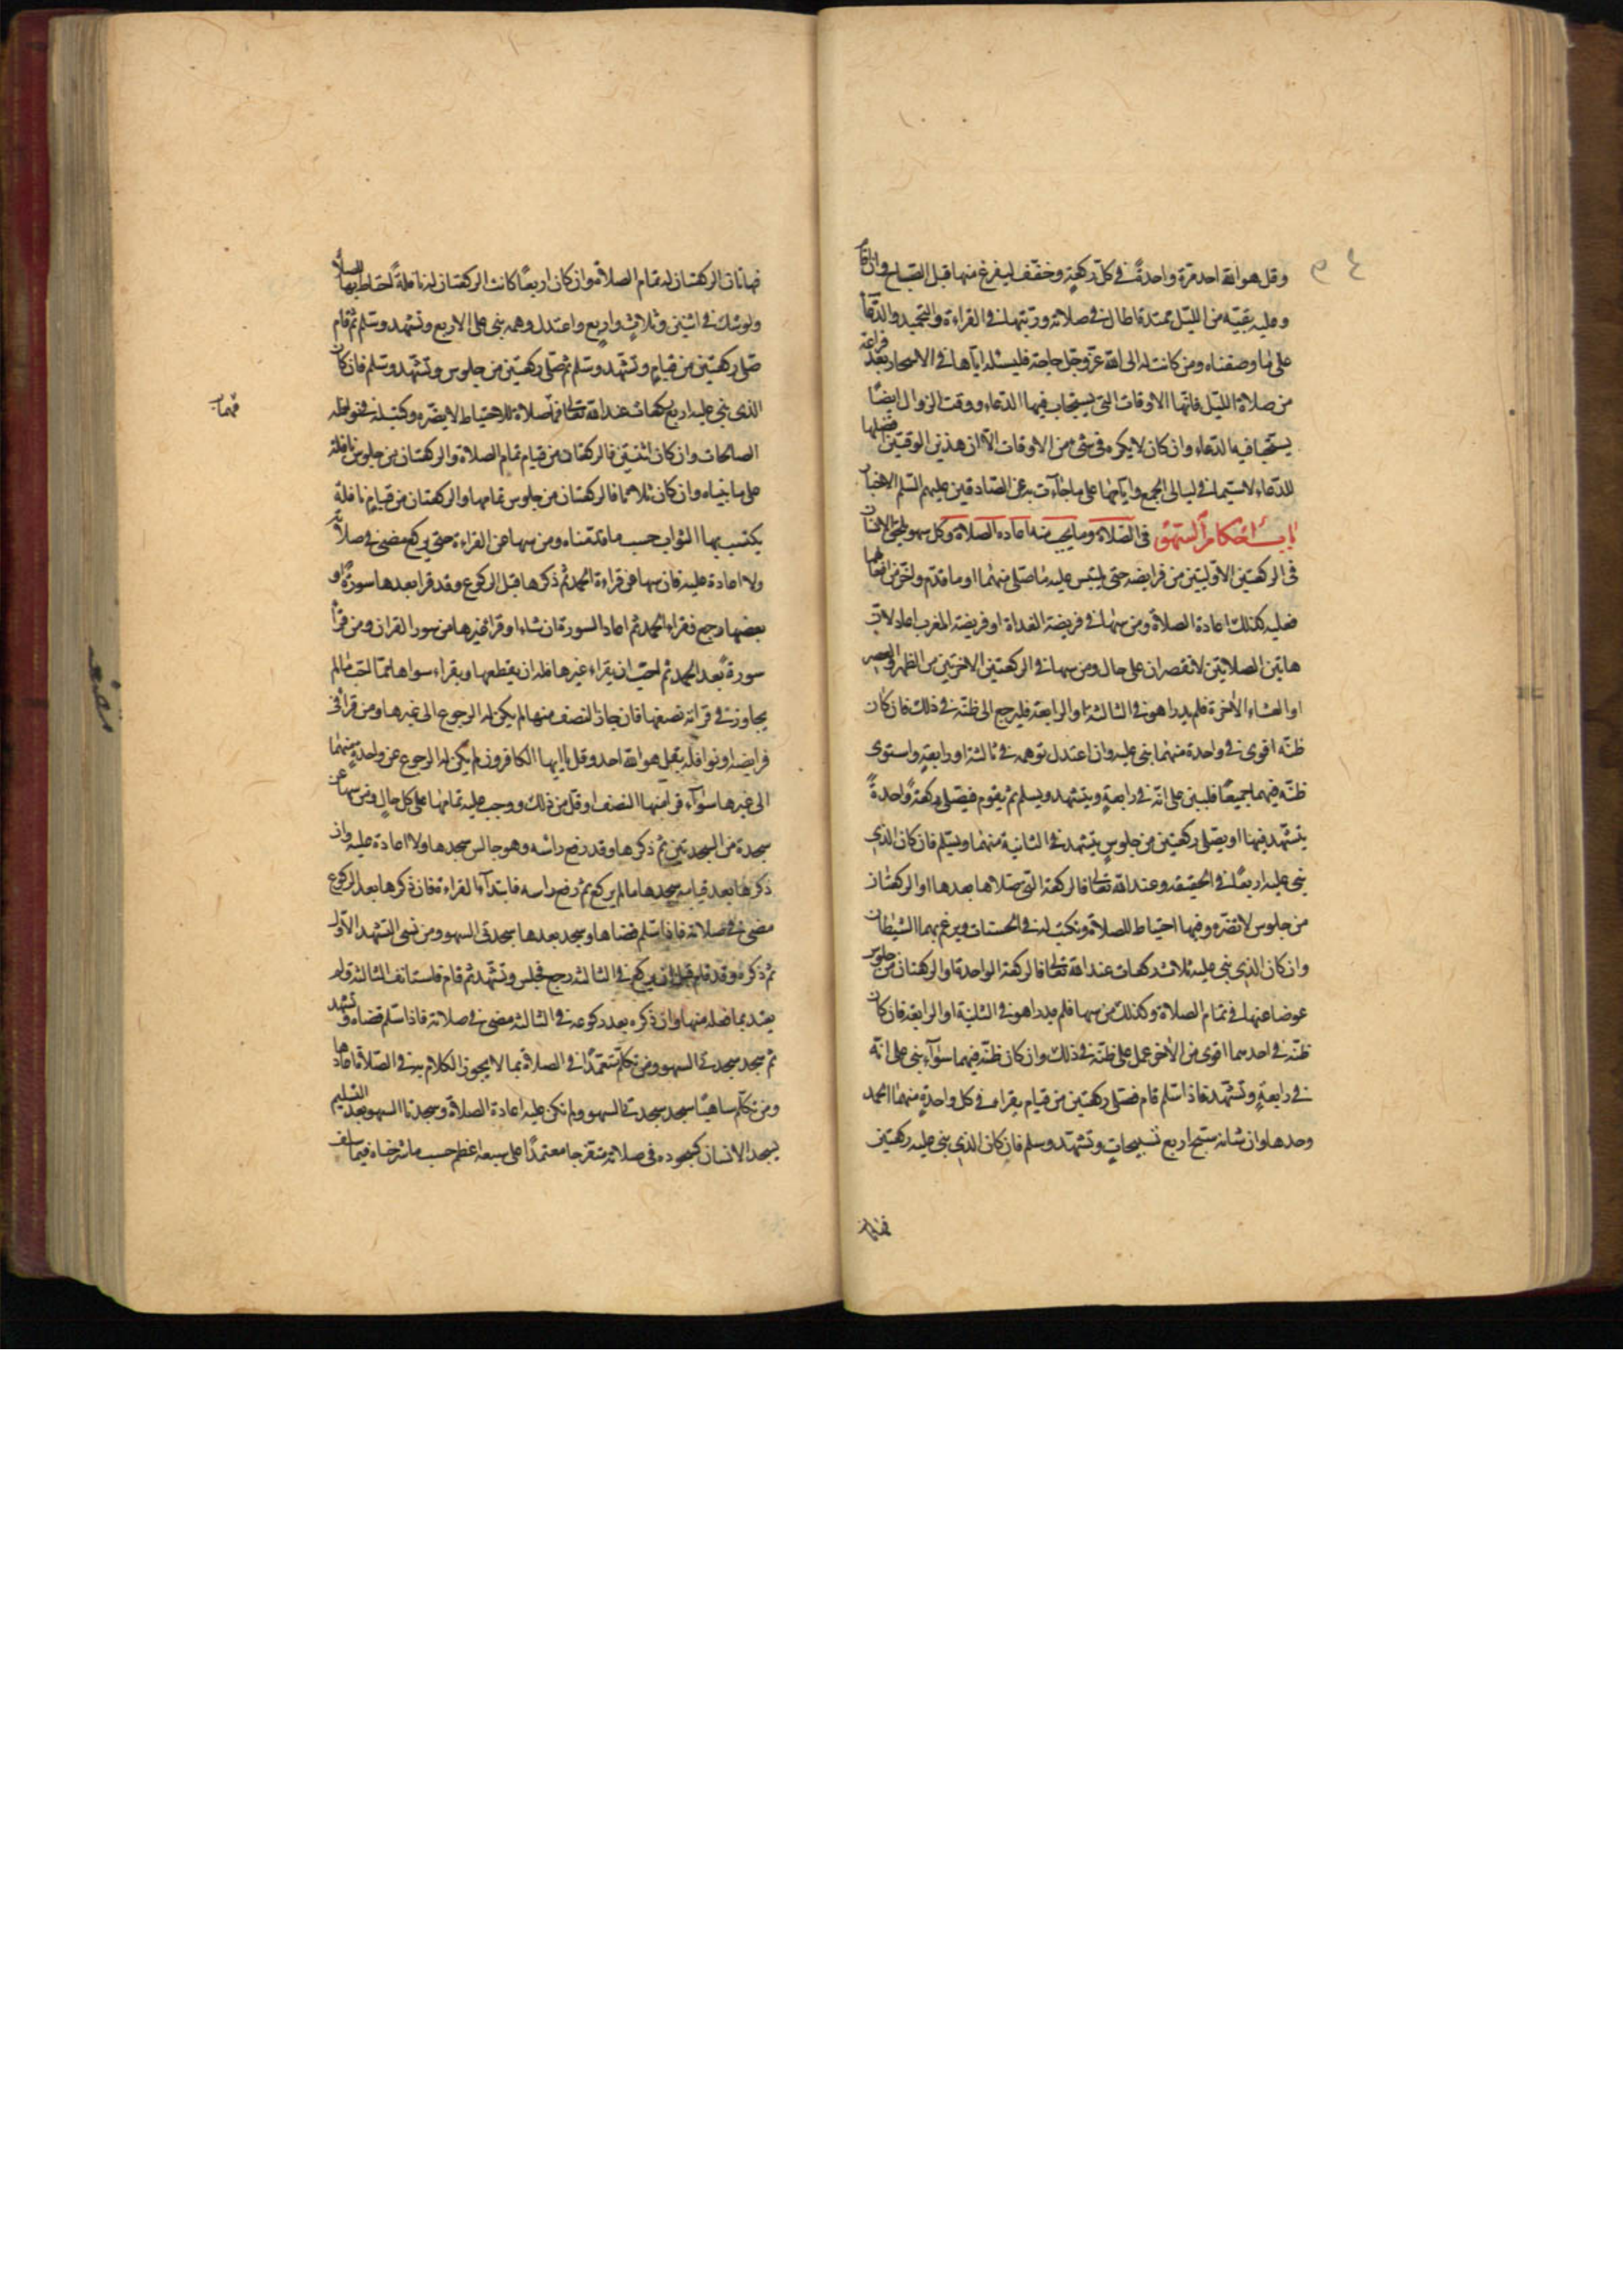 وقل هو الله احد مرة واحدة في كل ركعة وخفف ليفرغ منها قبل الصباح وان قام
وعليه بقية من الليل ممتدة اطال في صلاته ورتبها في القراءة والتحميد والدعا
على ما وصفناه ومن كانت له الى الله عز وجل حاجة فليسئله اياها في الاسحار بعد فراغه
من صلاة الليل فانها الاوقات التي يستجاب فيها الدعاء ووقت الزوال ايضا
يستحب فيه الدعاء وان كان لا يكره في شئ من الاوقات الا ان هذين الوقتين افضلها
للدعاء لاسيما في ليالي الجمع وايامها على ما جاءت به عن الصادقين عليهم السلم الاخبار
باب احكام السهو في الصلاة وما يجب منه اعاده الصلاة وكل سهو يلحق الانسان
في الركعتين الاوليتين من فرايضه حتى يلتبس عليه ما صلى منهما او ما قدم واخر من افعالهما
فعليه كذلك اعادة الصلاة ومن سها في فريضة الغداة او فريضة المغرب اعاد لان
هاتين الصلاتين لا تقصران على حال ومن سها في الركعتين الاخرتين من الظهر والعصر
او العشاء الاخرة فلم يدر اهو في الثالثة او الرابعة فليرجع الى ظنه في ذلك فان كان
ظنه اقوى في واحدة منهما بنى عليه وان اعتدل توهمه في ثالثة او رابعة واستوى
ظنه فيهما جميعا فليبن على انه في رابعة ويتشهد ويسلم ثم يقوم فيصلي ركعة واحدة
يتشهد فيها او يصلي ركعتين من جلوس يتشهد في الثانية منهما ويسلم فان كان الذي
بنى عليه اربعا في الحقيقه وعند الله تعالى فالركعة التي صلاها بعدها او الركعتان
من جلوس لا تضره وفيها احتياط للصلاة وتكتب له في الحسنات ويرغم بهما الشيطان
وان كان الذي بنى عليه ثلاث ركعات عند الله تعالى فالركعة الواحدة او الركعتان من جلوس
عوضا عنها في تمام الصلاة وكذلك من سها فلم يدر اهو في الثانية او الرابعة فان كان
ظنه في احدهما اقوى من الاخر عمل على ظنه في ذلك وان كان ظنه فيهما سواء بنى على انه
في رابعة وتشهد فاذا سلم قام فصلى ركعتين من قيام يقراء في كل واحدة منهما الحمد
وحدها وان شاء سبح اربع تسبيحات وتشهد وسلم فان كان الذي بنى عليه ركعتين
فهاتان الركعتان له تمام الصلاة وان كان اربعا كانت الركعتان له نافلة احتاط بها للصلاة
ولو شك في اثنين وثلاث واربع واعتدل وهمه بنى على الاربع وتشهد وسلم ثم قام
صلى ركعتين من قيام وتشهد وسلم ثم صلى ركعتين من جلوس وتشهد وسلم فان كان
الذي بنى عليه اربع ركعات عند الله تعالى فما صلاة للاحتياط لا يضره وكتب له في نوافله
الصالحات وان كان اثنتين فالركعتان من قيام تمام الصلاة والركعتان من جلوس نافلة
على ما بنياه وان كان ثلاثا فالركعتان من جلوس تمامها والركعتان من قيام نافلة
يكتسب بها الثواب حسب ما قدمناه ومن سها عن القراءة حتى يركع مضى في صلاته
ولا اعادة عليه فان سها عن قراءة الحمد ثم ذكرها قبل الركوع وقد قرا بعدها سورة او
بعضها رجع فقراء الحمد ثم اعاد السورة ان شاء او قرا غيرها من سور القران ومن قرأ
سورة بعد الحمد ثم احب ان يقراء غيرها فله ان يقطعها ويقراء سواها مما احب ما لم
يجاوز في قرائة نصفها فان جاز النصف منها لم يكن له الرجوع الى غيرها ومن قرا في
فرايضه او نوافله بقل هو الله احد وقل يا ايها الكافرون لم يكن له الرجوع عن واحدة منهما
الى غيرها سواء قرا منها النصف او قل من ذلك ووجب عليه تمامها على كل حال ومن سها عن
سجدة من السجدتين ثم ذكرها وقد رفع رأسه وهو جالس سجدها ولا اعادة عليه وان
ذكرها بعد قيامه سجدها ما لم يركع ثم رفع راسه فابتدأ القراءة فان ذكرها بعد الركوع
مضى في صلاته فاذا سلم قضاها وسجد بعدها سجدتي السهو ومن نسي التشهد الاول
ثم ذكره وقد قام قبل ان يركع في الثالثة رجع فجلس وتشهد ثم قام فاستانف الثالثة ولم
يعتد بما فعله منها وان ذكره بعد ركوعه في الثالثة مضى في صلاته فاذا سلم قضاه وتشهد
ثم سجد سجدتي السهو ومن تكلم متعمدا في الصلاة بما لا يجوز الكلام به في الصلاة اعادها
ومن تكلم ساهيا سجد سجدتي السهو ولم تكن عليه اعادة الصلاة وسجدتا السهو بعد التسليم
يسجد الانسان كسجوده في صلاته متفرجا معتمدا على سبعة اعظم حسب ما شرحناه فيما سلف